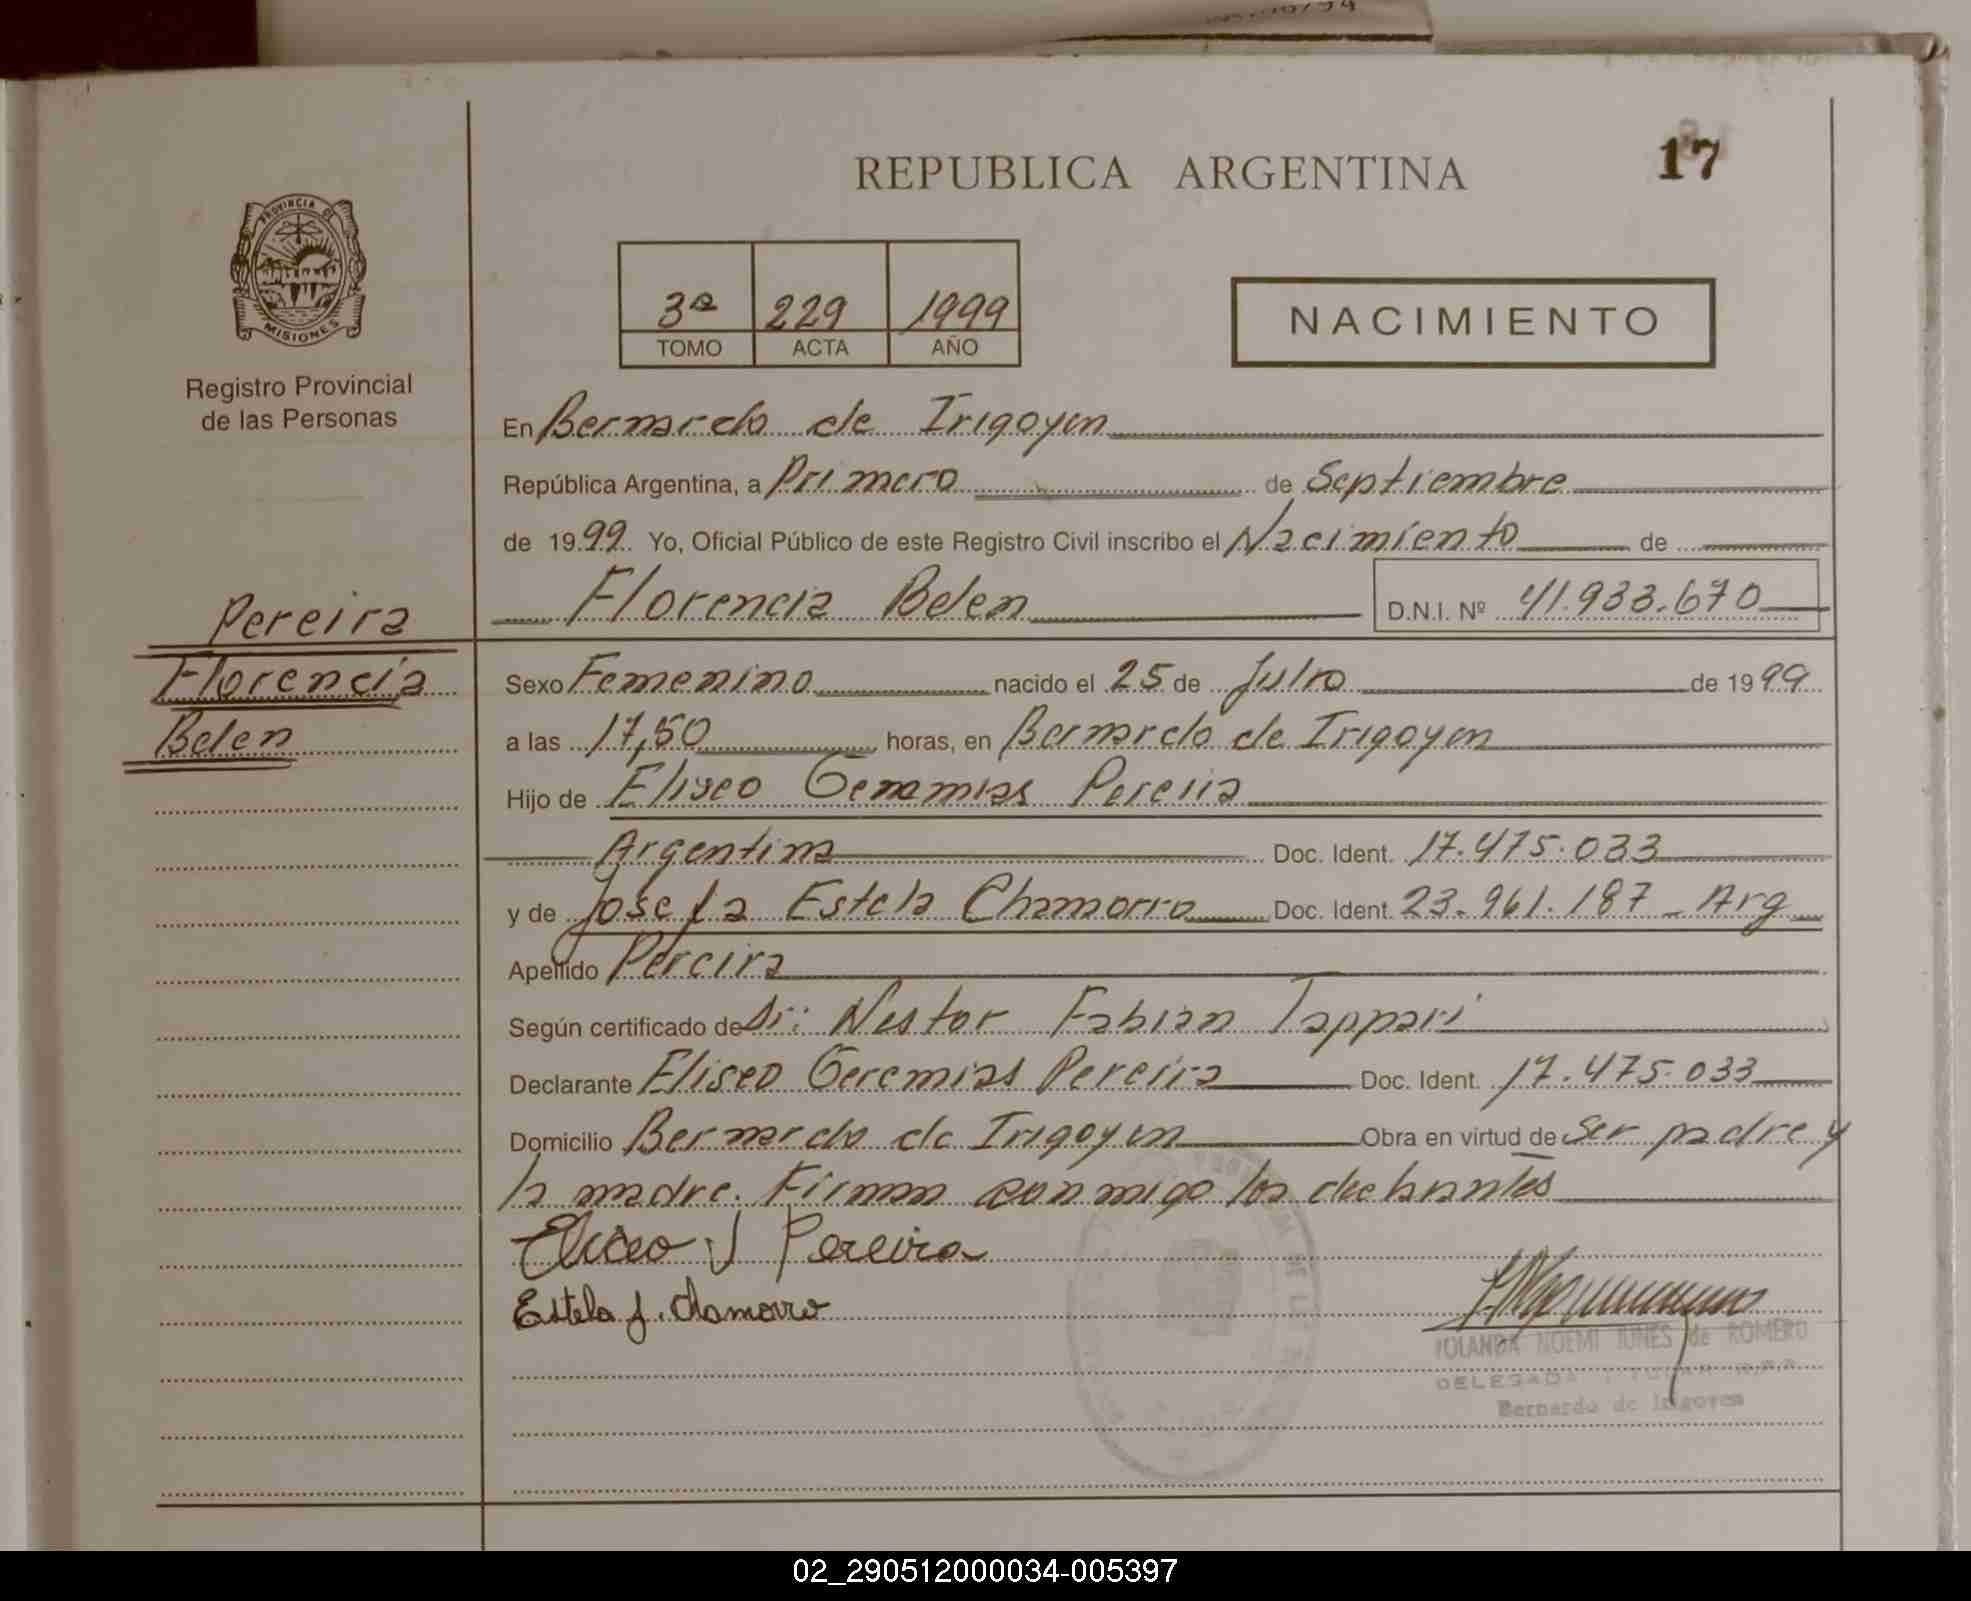 17
REPUBLICA ARGENTINA
PROVINCIA DE
MISIONES
Registro Provincial
de las Personas
3ª 229 1999
TOMO ACTA AÑO
NACIMIENTO
En Bernardo de Irigoyen
República Argentina, a Primero de Septiembre
de 1999 Yo, Oficial Público de este Registro Civil inscribo el Nacimiento de
Florencia Belen D.N.I. Nº 41.933.670
Pereira
Florencia
Belen
Sexo Femenino nacido el 25 de Julio de 1999
a las 17,50 horas, en Bernardo de Irigoyen
Hijo de Eliseo Geremias Pereira
Argentina Doc. Ident. 17.475.033
y de Josefa Estela Chamorro Doc. Ident. 23.961.187 - Arg
Apellido Pereira
Según certificado de Dr: Nestor Fabian Tappari
Declarante Eliseo Geremias Pereira Doc. Ident. 17.475.033
Domicilio Bernardo de Irigoyen Obra en virtud de Ser padre y
la madre. Firman conmigo los declarantes
Eliseo J Pereira
Estela J. Chamorro
YOLANDA NOEMI JUNES de ROMERO
DELEGADA TITULAR
Bernardo de Irigoyen
02_290512000034-005397